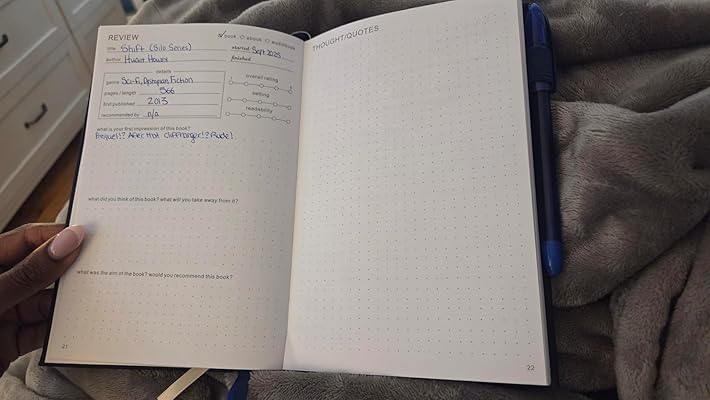 REVIEW
book ebook audiobook
title Shift (Silo Series)
started Sept 2025
author
finished
details
genre Sci-fi, Dystopian Fiction
pages / length 566
first published 2013
recommended by n/a
overall rating
1 5
setting
readability
what is your first impression of this book?
Prequel!? After that cliffhanger!? Rude!
what did you think of this book? what will you take away from it?
what was the aim of the book? would you recommend this book?
21
THOUGHT/QUOTES
22